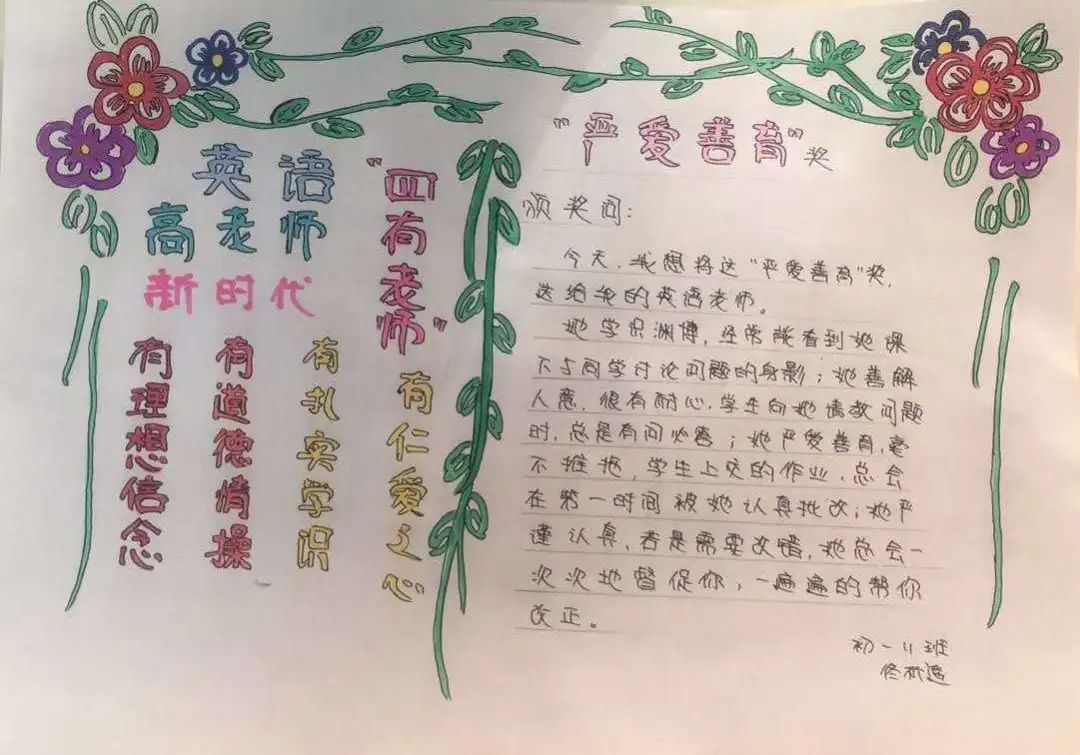 英语
高老师
新时代
"四有老师"
有理想信念
有道德情操
有扎实学识
有仁爱之心
"严爱善育"奖
颁奖词：
今天，我想将这"严爱善育"奖，
送给我的英语老师。
她学识渊博，经常能看到她课
下与同学讨论问题的身影；她善解
人意，很有耐心，学生向她请教问题
时，总是有问必答；她严爱善育，毫
不推拖，学生上交的作业，总会
在第一时间被她认真批改；她严
谨认真，若是需要改错，她总会一
次次地督促你，一遍遍的帮你
改正。
初一11班